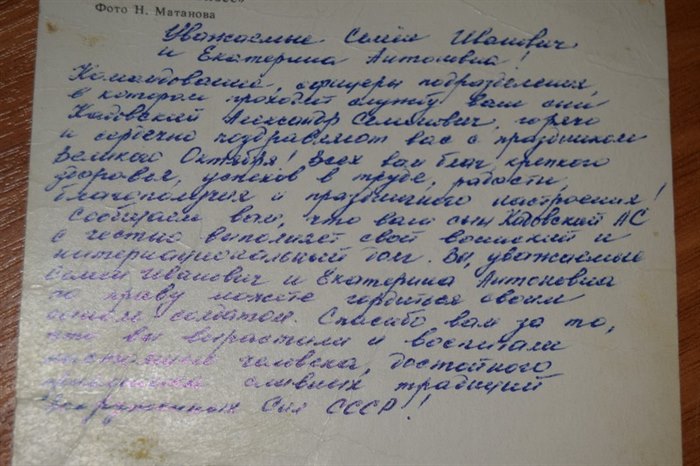 Фото Н. Матанова
Уважаемые Семён Иванович
и Екатерина Антоновна!
Командование, офицеры подразделения,
в котором проходит службу Ваш сын
Александр Семёнович, горячо
и сердечно поздравляют вас с праздником
Великого Октября! Всех вам благ, крепкого
здоровья, успехов в труде, радости,
благополучия и праздничного настроения!
Сообщаем вам, что ваш сын АС
с честью выполняет свой воинский и
интернациональный долг. Вы, уважаемые
Семён Иванович и Екатерина Антоновна
по праву можете гордиться своим
сыном солдатом. Спасибо вам за то,
что вы вырастили и воспитали
человека, достойного
славных традиций
Вооруженных Сил СССР!